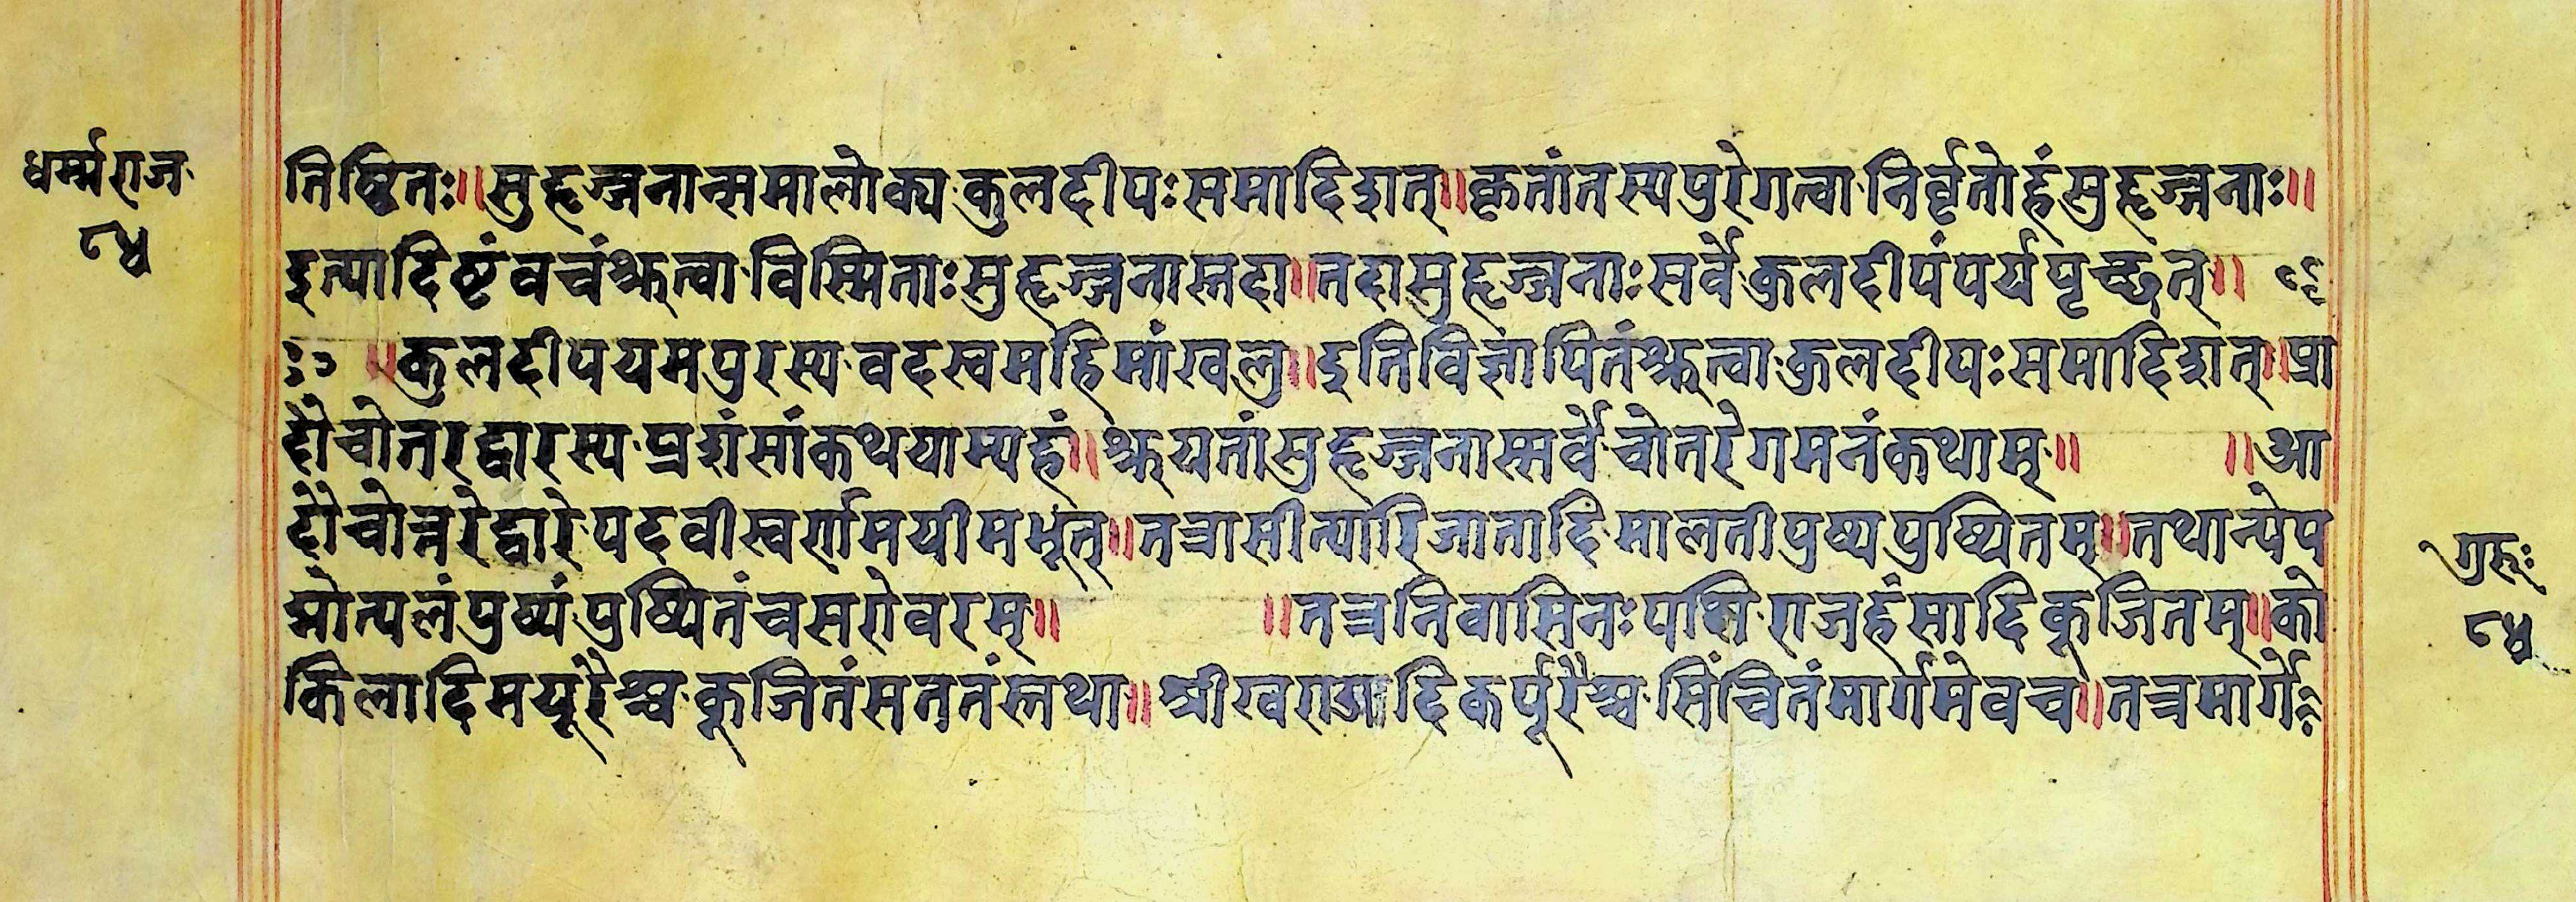 धर्म्मराज
८४
तिष्ठितः॥सुहृज्जनान्समालोक्य कुलदीपःसमादिशत्॥कृतांतस्यपुरेगत्वा निर्वृतोहंसुहृज्जनाः॥
इत्यादिष्टंवचंश्रुत्वा विस्मिताःसुहृज्जनास्तदा॥तदासुहृज्जनाःसर्वे कुलदीपंपर्यपृच्छत्॥
॥कुलदीपयमपुरस्य वदस्वमहिमांखलु॥इतिविज्ञापितंश्रुत्वा कुलदीपःसमादिशत्॥प्रा
दौचोतरद्वारस्य प्रशंसांकथयाम्यहं॥श्रूयतांसुहृज्जनास्सर्वे चोतरेगमनंकथाम्॥ ॥आ
दौचोत्तरेद्वारे पदवीस्वर्णमयीमभूत्॥तत्रासीत्पारिजातादि मालतीपुष्पपुष्पितम्॥तथान्येप
द्मोत्पलंपुष्पं पुष्पितंचसरोवरम्॥ ॥तत्रनिवासिनःपक्षि राजहंसादिकूजितम्॥को
किलादिमयूरैश्च कूजितंसततंस्तथा॥श्रीखराडादिकर्पूरैश्च सिंचितंमार्गमेवच॥तत्रमार्गे
गुरुः
८४